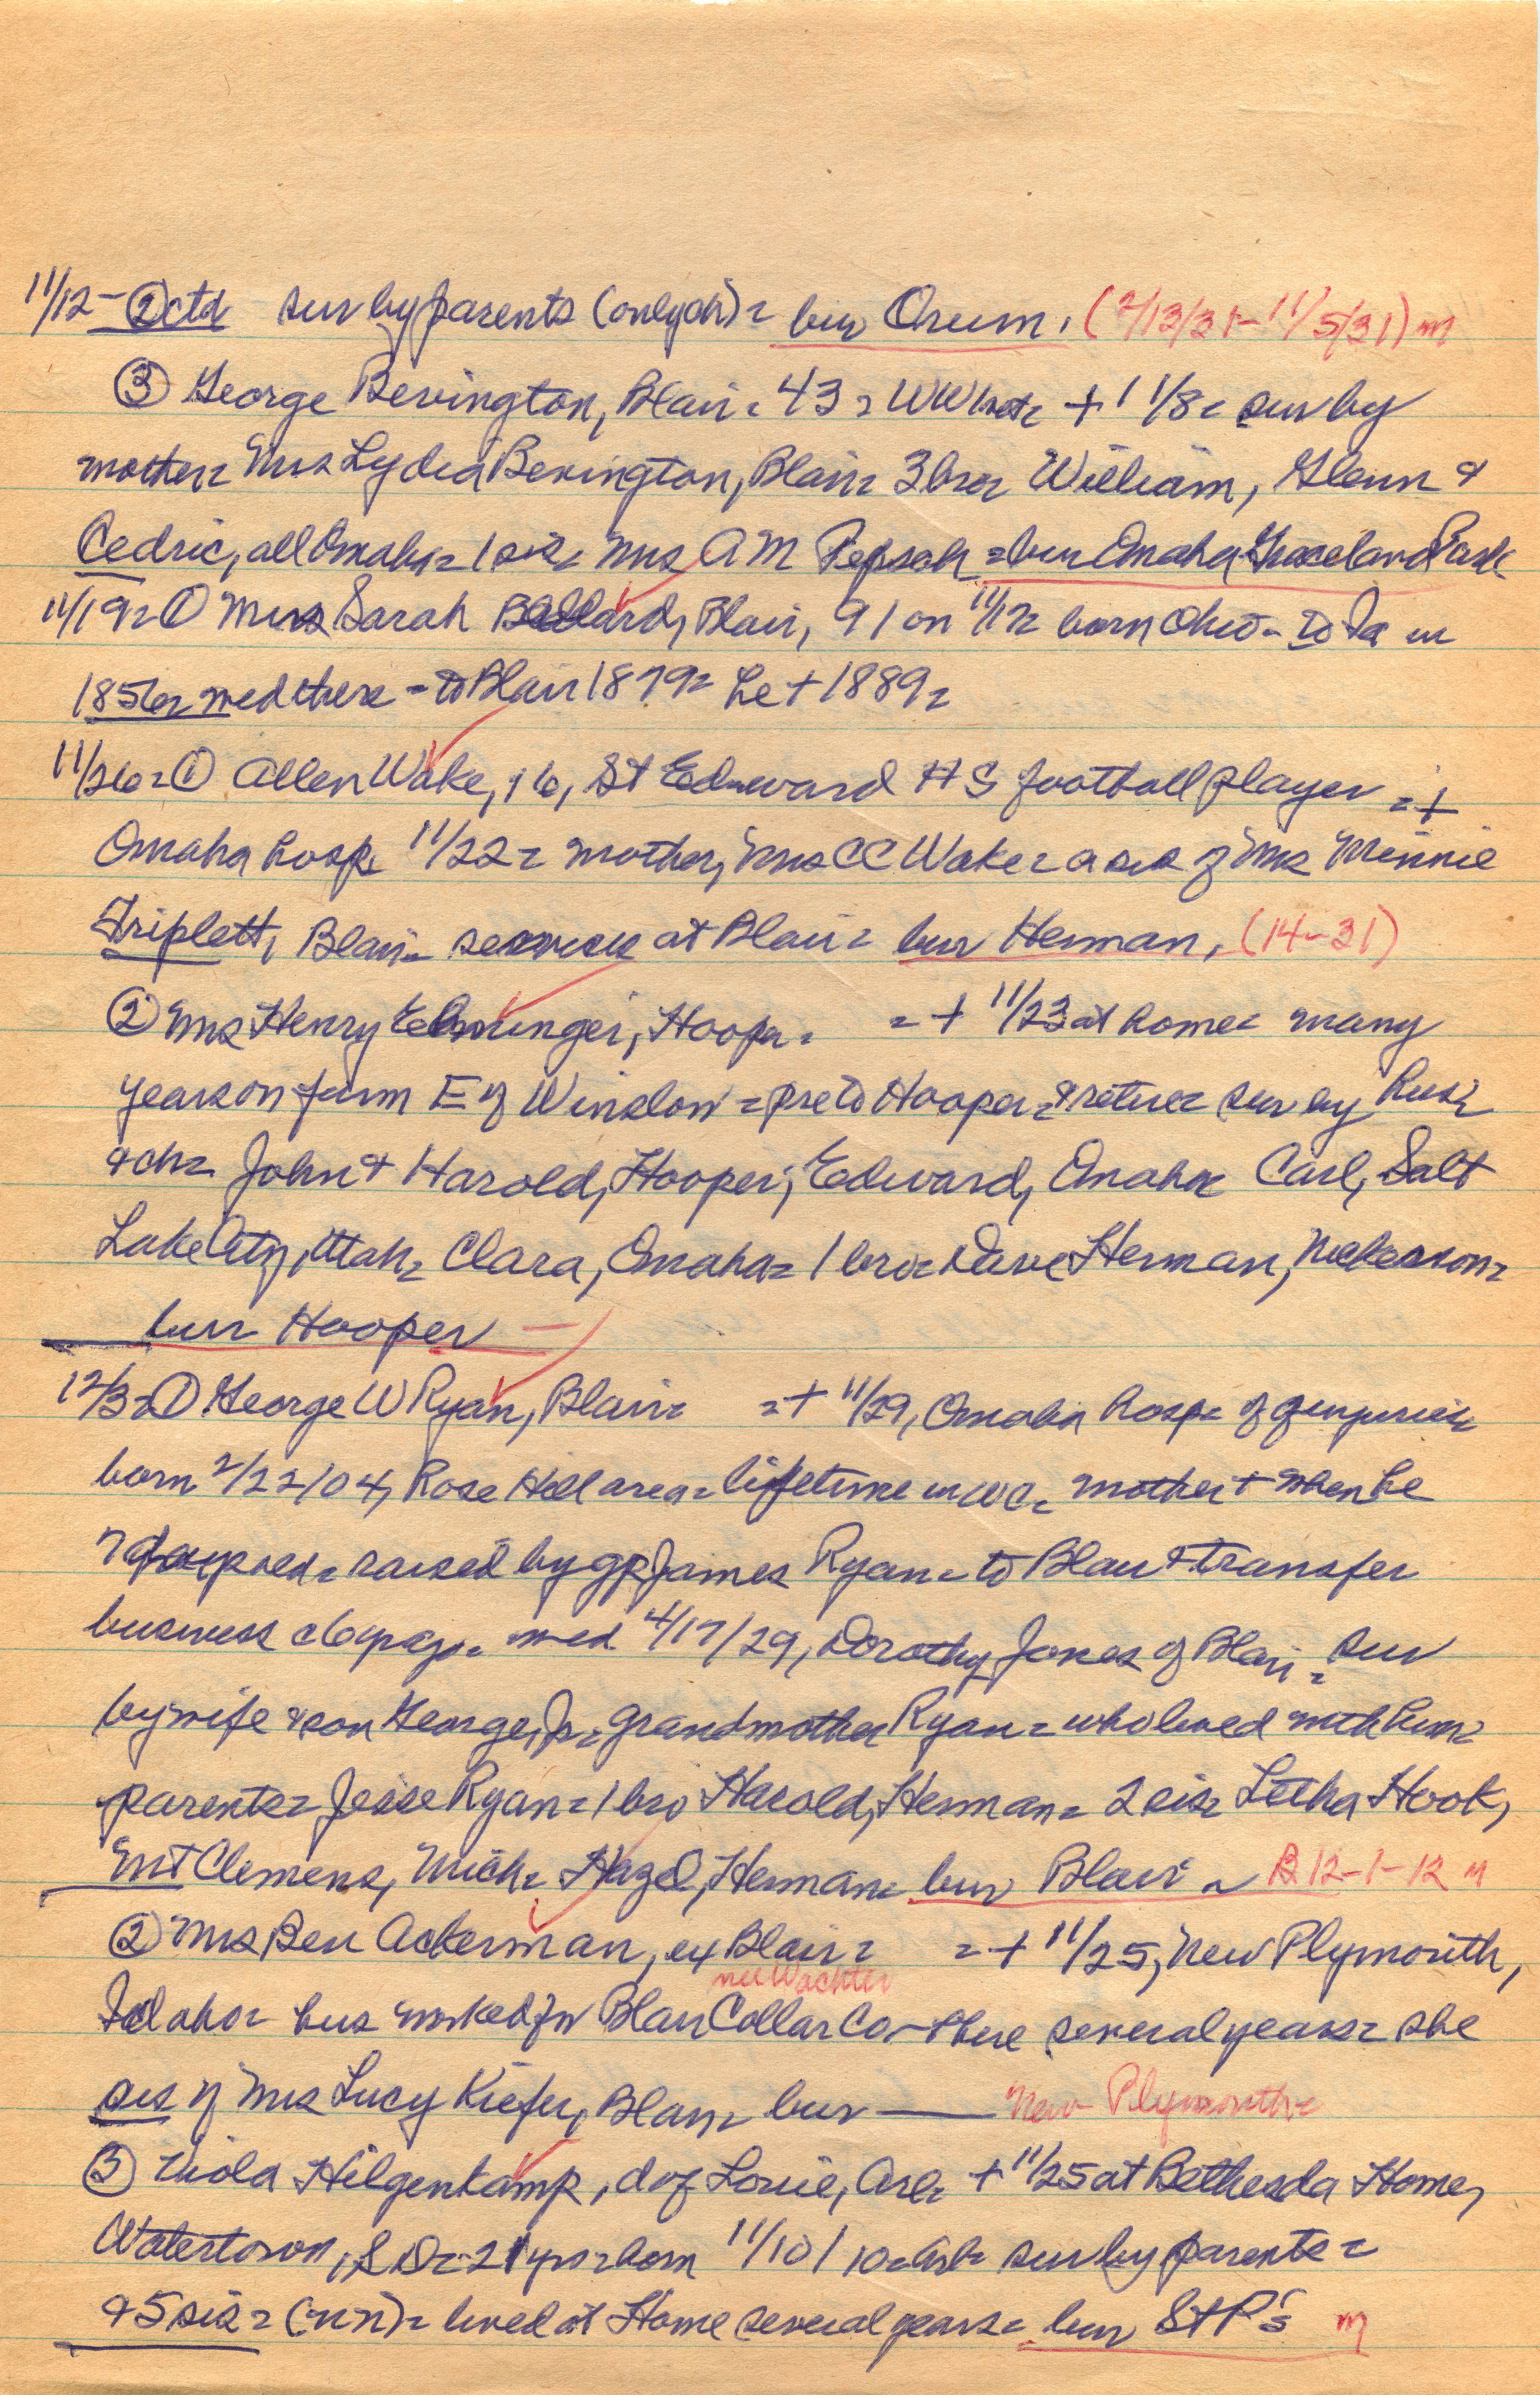 11/12 - ② ctd sur by parents (only ch) = bur Orum. (2/13/31 - 11/5/31) m
③ George Bevington, Blair = 43 = WW1 vet = + 11/8 = sur by
mother = Mrs Lydia Bevington, Blair = 3 bro = William, Glenn &
Cedric, all Omaha = 1 sis = Mrs A M = bur Omaha Graceland Park
11/19 = ① Mrs Sarah Ballard, Blair, 91 on 11/12 = born Ohio - to Ia in
1856 = med there - to Blair 1879 = he + 1889 =
11/26 = ① Allen Wake, 16, St Edward HS football player = +
Omaha hosp 11/22 = mother, Mrs CC Wake = a sis of Mrs Minnie
Triplett, Blair = services at Blair = bur Herman. (14-31)
② Mrs Henry, Hooper = = + 11/23 at home = many
years on farm E of Winslow = pre to Hooper = & retire = sur by hus =
& ch = John & Harold, Hooper; Edward, Omaha = Carl, Salt
Lake City, Utah = Clara, Omaha = 1 bro = Dave Herman, Nickerson =
bur Hooper -
12/3 = ① George W Ryan, Blair = = + 11/29, Omaha hosp = of injuries =
born 2/22/04, Rose Hill area = lifetime in WC = mother + when he
7 old = raised by gp James Ryan = to Blair & transfer
business c 6 yr ago = med 4/17/29, Dorothy Jones of Blair = sur
by wife & son George, Jr = grandmother Ryan = who lived with him =
parents = Jesse Ryan = 1 bro Harold, Herman = 2 sis = Letha Hook,
Mt Clemens, Mich = Hazel, Herman = bur Blair ~ B 12-1-12 m
② Mrs Ben Ackerman, ex Blair = = + 11/25, New Plymouth,
nee Wachter
Idaho = hus worked for Blair Collar Co - there several years = she
sis of Mrs Lucy Kiefer, Blair = bur — New Plymouth =
③ Viola Hilgenkamp, d of Louie, Arl = + 11/25 at Bethesda Home,
Watertown, SD = 21 yrs = born 11/10/10 = Arl = sur by parents =
& 5 sis = (nn) = lived at Home several years = bur St P's m